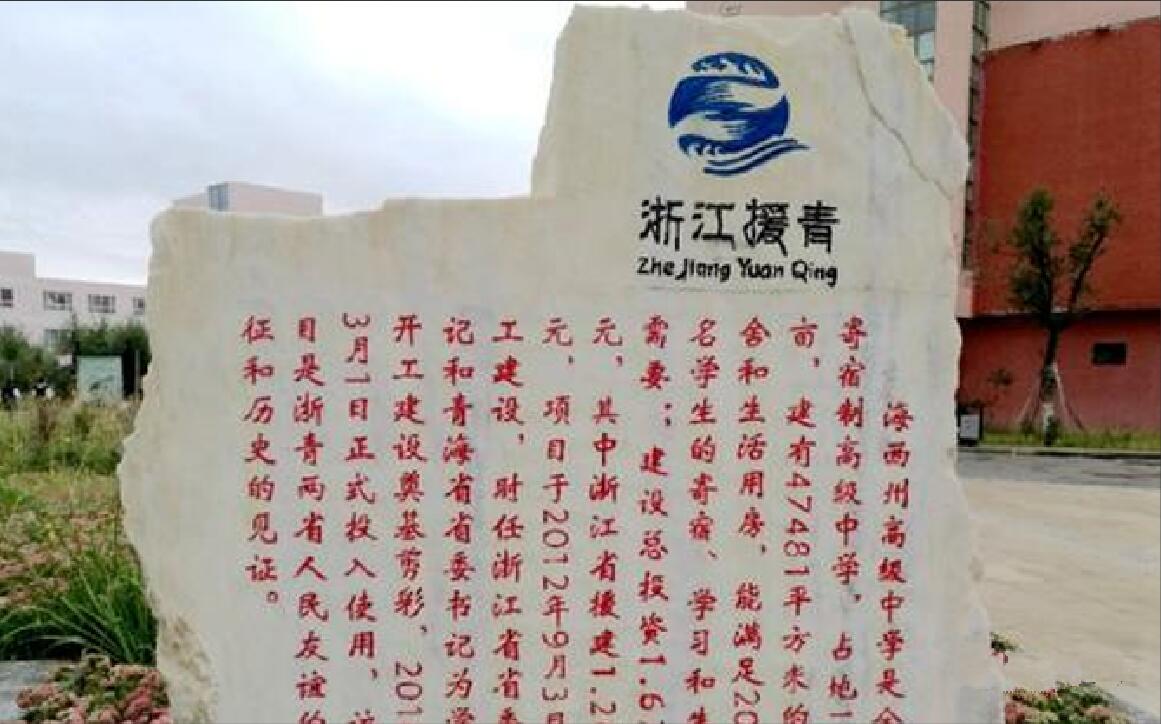 浙江援青
Zhe Jiang Yuan Qing
海西州高级中学是全
寄宿制高级中学，占地1
亩，建有47481平方米的
舍和生活用房，能满足20
名学生的寄宿、学习和生
需要；建设总投资1.6
元，其中浙江省援建1.2
元，项目于2012年9月3日
工建设，时任浙江省省委
记和青海省省委书记为学
开工建设奠基剪彩，201
3月1日正式投入使用，该
目是浙青两省人民友谊的
征和历史的见证。